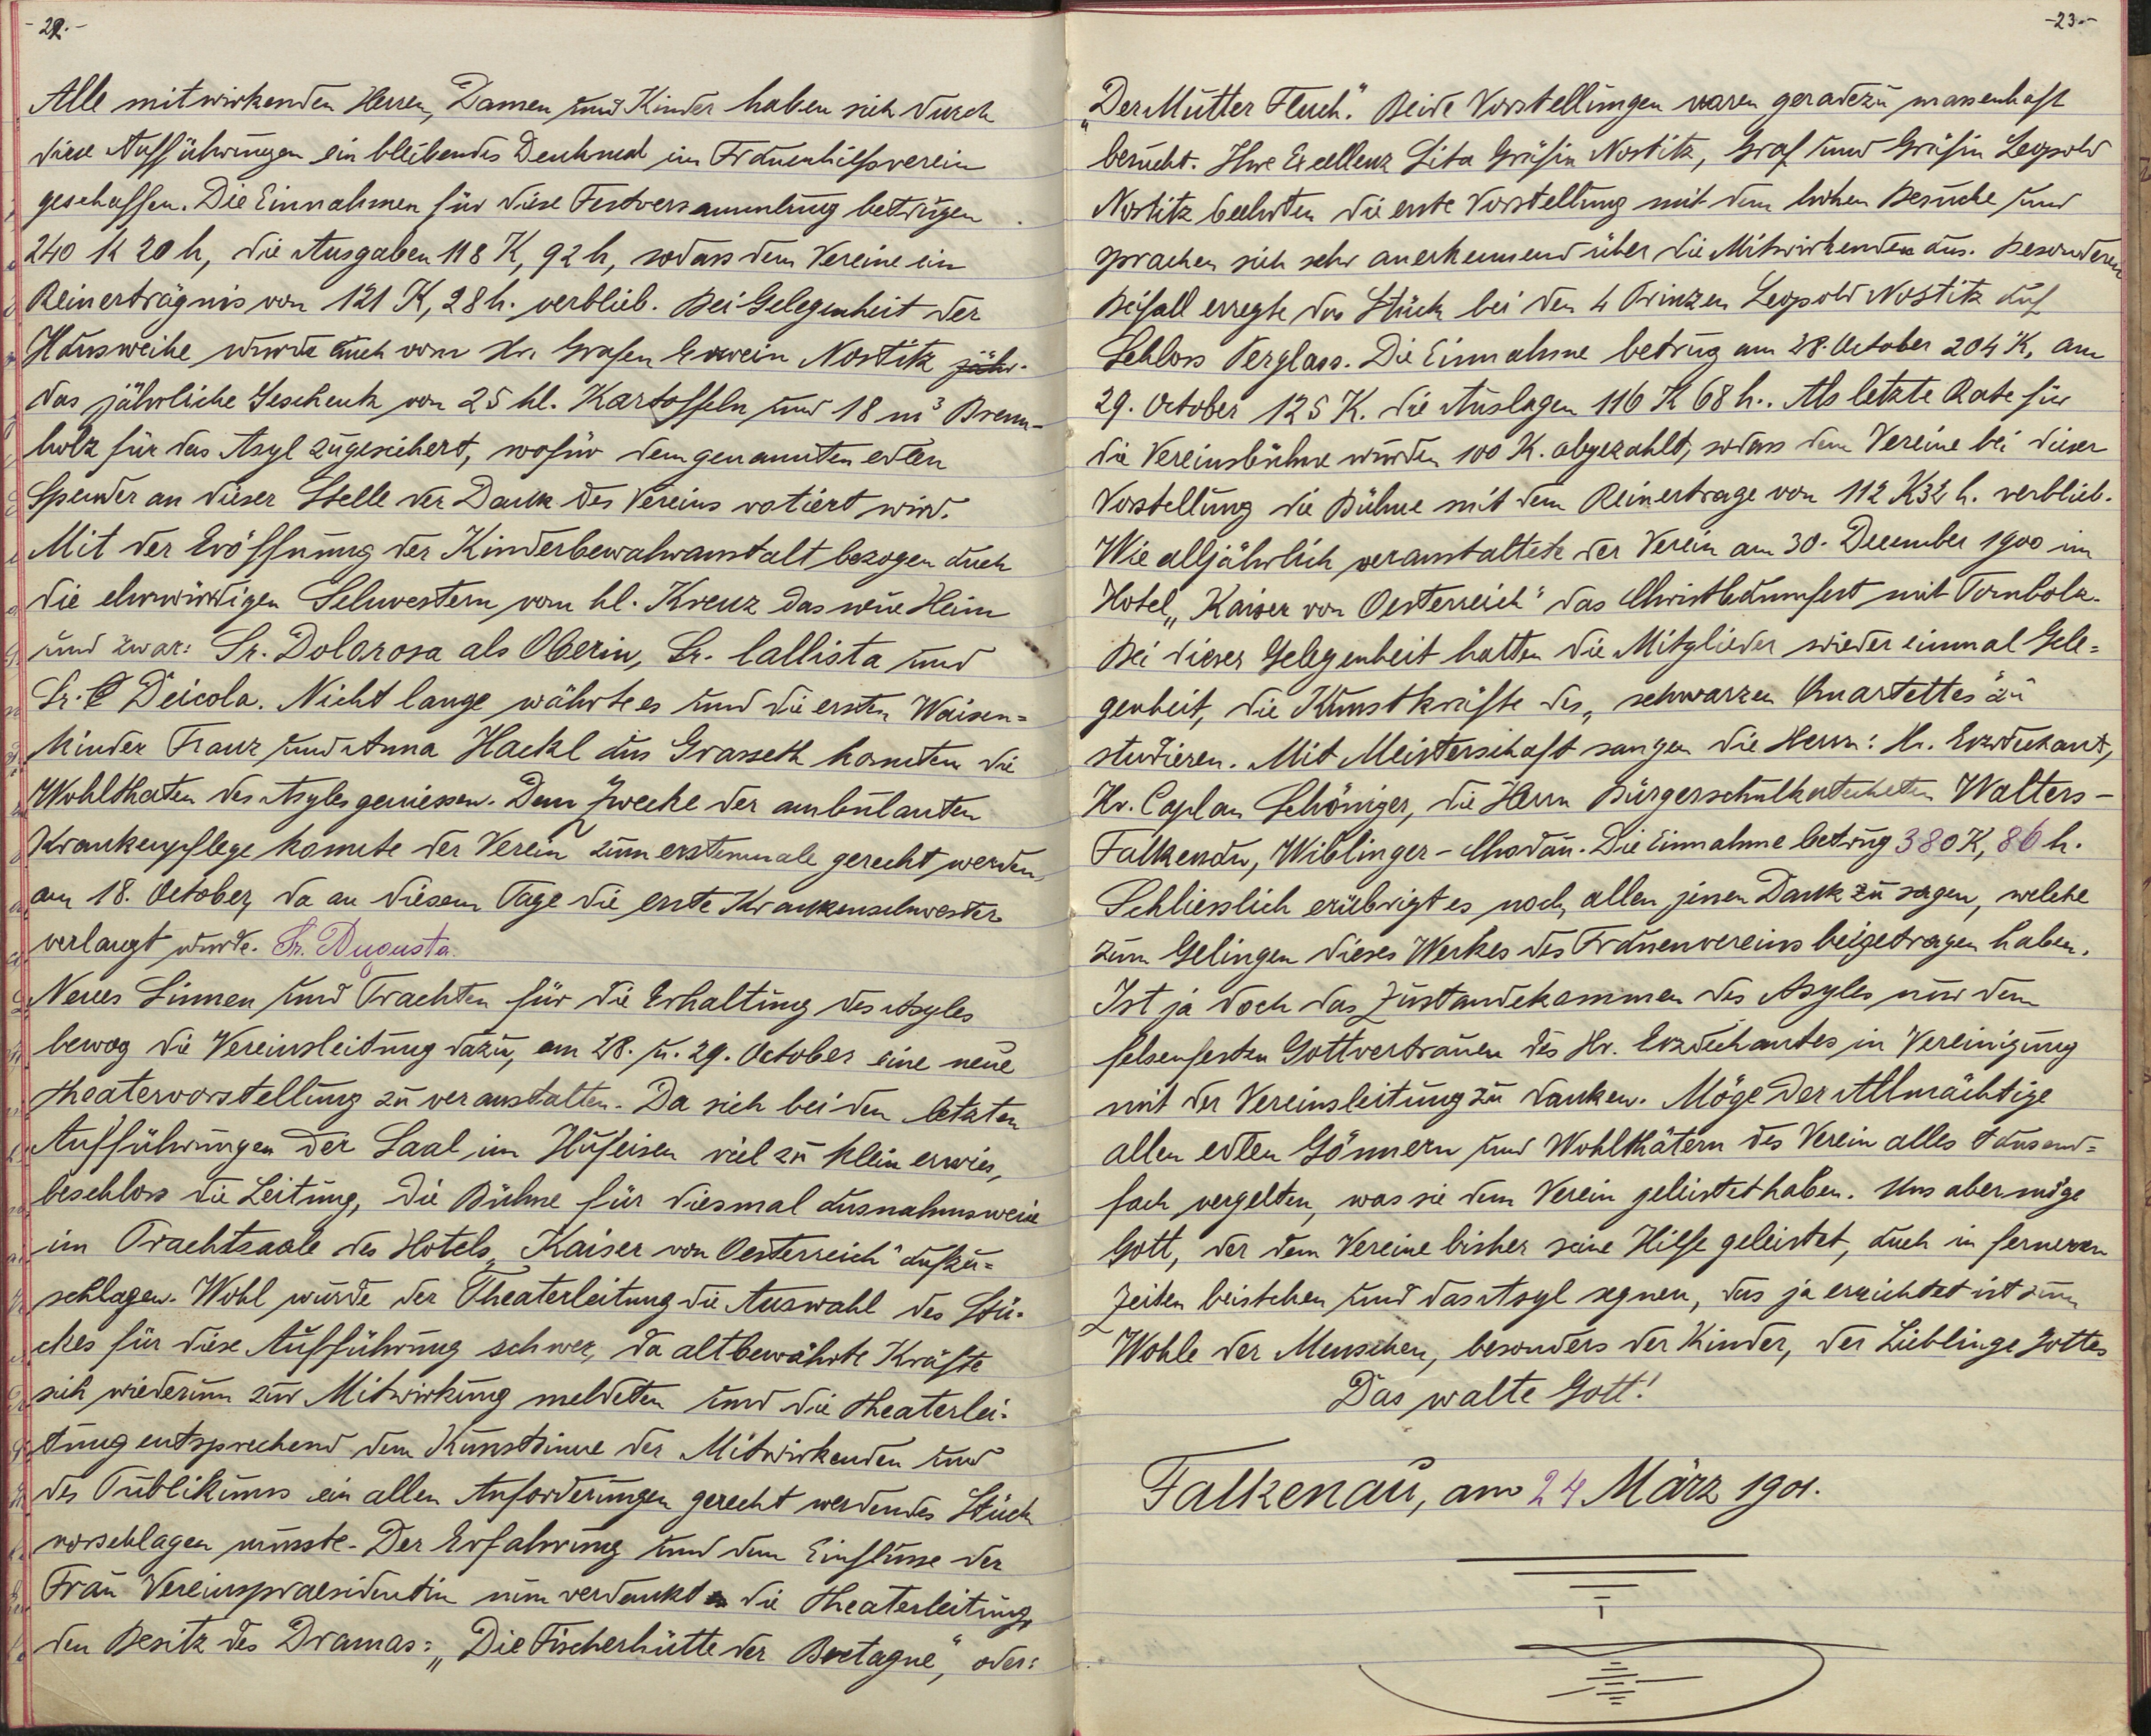 -22.-
Alle mitwirkenden Herren, Damen und Kinder haben sich durch
diese Aufführungen ein bleibendes Denkmal im Frauenhilfsverein
geschaffen. Die Einnahmen für diese Festversammlung betrugen
240 K 20 h, die Ausgaben 118 K, 92 h, sodass dem Vereine ein
Reinerträgnis von 121 K, 28 h. verblieb. Bei Gelegenheit der
Hausweihe wurde auch vom Hr. Grafen Erwein Nostitz jähr-
das jährliche Geschenk von 25 hl. Kartoffeln und 18 m³ Brenn-
holz für das Asyl zugesichert, wofür dem genannten edlen
Spender an dieser Stelle der Dank des Vereins votiert wird.
Mit der Eröffnung der Kinderbewahranstalt bezogen auch
die ehrwürdigen Schwestern vom hl. Kreuz das neue Heim
und zwar: Sr. Dolorosa als Oberin, Sr. Callista und
Sr. Deicola. Nicht lange währte es und die ersten Waisen=
kinder Franz und Anna Hackl aus Grasseth konnten die
Wohlthaten des Asyles geniessen. Dem Zwecke der ambulanten
Krankenpflege konnte der Verein zum erstenmale gerecht werden,
am 18. October, da an diesem Tage die erste Krankenschwester
verlangt wurde. Sr. Augusta.
Neues Sinnen und Trachten für die Erhaltung des Asyles
bewog die Vereinsleitung dazu, am 28. u. 29. October eine neue
Theatervorstellung zu veranstalten. Da sich bei den letzten
Aufführungen der Saal im Hufeisen viel zu klein erwies,
beschloss die Leitung, die Bühne für diesmal ausnahmsweise
im Prachtsaale des Hotels „Kaiser von Oesterreich" aufzu=
schlagen. Wohl wurde der Theaterleitung die Auswahl des Stü-
ckes für diese Aufführung schwer, da altbewährte Kräfte
sich wiederum zur Mitwirkung meldeten und die Theaterlei-
tung entsprechend dem Kunstsinne der Mitwirkenden und
des Publikums ein allen Anforderungen gerecht werdendes Stück
vorschlagen musste. Der Erfahrung und dem Einflusse der
Frau Vereinspraesidentin nun verdankt die Theaterleitung,
den Besitz des Dramas: „Die Fischerhütte der Bretagne", oder:
-23.-
„Der Mutter Fluch". Beide Vorstellungen waren geradezu massenhaft
besucht. Ihre Excellenz Sita Gräfin Nostitz, Graf und Gräfin Leopold
Nostitz beehrten die erste Vorstellung mit dem hohen Besuche und
sprachen sich sehr anerkennend über die Mitwirkenden aus. Besonderen
Beifall erregte das Stück bei den 4 Prinzen Leopold Nostitz auf
Schloss Perglass. Die Einnahme betrug am 28. October 204 K, am
29. October 125 K. die Auslagen 116 K 68 h.. Als letzte Rate für
die Vereinsbühne wurden 100 K. abgezahlt, sodass dem Vereine bei dieser
Vorstellung die Bühne mit dem Reinertrage von 112 K 32 h. verblieb.
Wie alljährlich veranstaltete der Verein am 30. December 1900 im
Hotel „Kaiser von Oesterreich" das Christbaumfest mit Tombola.
Bei dieser Gelegenheit hatten die Mitglieder wieder einmal Gele=
genheit, die Kunstkräfte des „schwarzen Quartettes" zu
studieren. Mit Meisterschaft sangen die Herrn: Hr. Erzdechant,
Hr. Caplan Schöniger, die Herrn Bürgerschulkatecheten Walters-
Falkenau, Wiblinger-Chodau. Die Einnahme betrug 380 K, 86 h.
Schliesslich erübrigt es noch, allen jenen Dank zu sagen, welche
zum Gelingen dieses Werkes des Frauenvereins beigetragen haben.
Ist ja doch das Zustandekommen des Asyles nur dem
felsenfesten Gottvertrauen des Hr. Erzdechantes in Vereinigung
mit der Vereinsleitung zu danken. Möge der Allmächtige
allen edlen Gönnern und Wohlthätern des Verein alles tausend=
fach vergelten, was sie dem Verein geleistet haben. Uns aber möge
Gott, der dem Vereine bisher seine Hilfe geleistet, auch in ferneren
Zeiten beistehen und das Asyl segnen, das ja errichtet ist zum
Wohle der Menschen, besonders der Kinder, der Lieblinge Gottes
Das walte Gott!
Falkenau, am 24 März 1901.